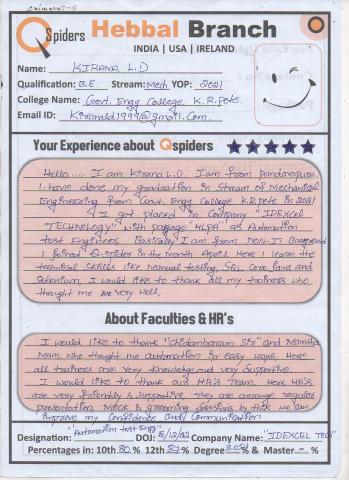 QSpiders Hebbal Branch
INDIA | USA | IRELAND
Name: KIRANA. L.D
Qualification: B.E Stream: Mech YOP: 2021
College Name: Govt. Engg College, K.R.Pete
Email ID:
Your Experience about Qspiders
Hello..... I am Kirana L.D. I am from pandavapura
I have done my graduation in Stream of Mechanical
Engineering from Govt. Engg College K.R.pete in 2021
I got placed in Company "IDEXCEL
TECHNOLOGY" with package "4LPA" as Automation
test Engineer. Basically I am from NON-IT Background
I joined Q-spiders in the month April. Here I learn the
technical skills like Manual testing, SQL, Core Java and
Selenium, I would like to thank all my trainers who
thought me very well,
About Faculties & HR's
I would like to thank "Chidambaram Sir" and Mamtha
Mam, who thought me automation in easy ways, Here
all trainers are very knowledge and very supportive.
I would like to thank our HR's Team. Here HR'S
are very friendly & supportive, they are arrange regular
presentation, Mock & grooming sessions by that we can
improve my confidence and Communication
Designation: "Automation test Engg" DOJ: 5/12/22 Company Name: "IDEXCEL Tech"
Percentages in: 10th % 12th % Degree % & Master - %